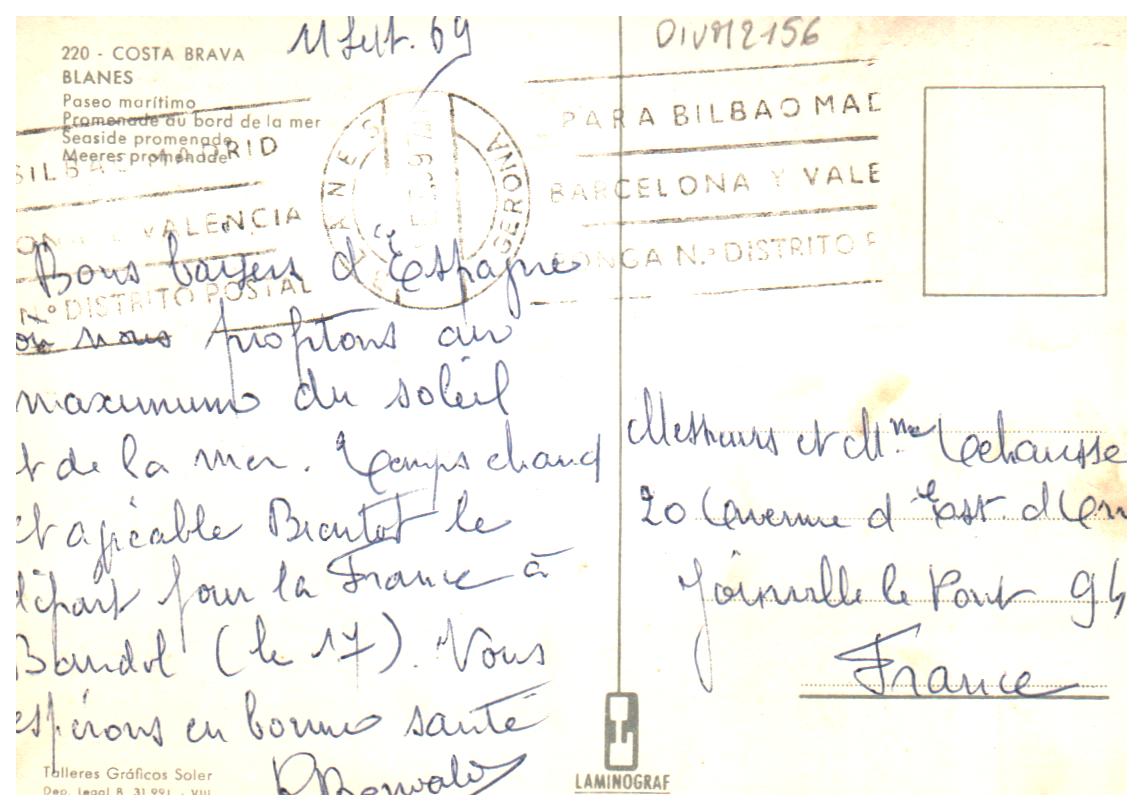 220 - COSTA BRAVA
BLANES
Paseo marítimo
Promenade au bord de la mer
Seaside promenade
Meeres promenade
11 Sept. 69
DIVM2156
BLANES
GERONA
BILBAO MADRID
VALENCIA
N.º DISTRITO POSTAL
PARA BILBAO MAD
BARCELONA Y VALE
PONGA N.º DISTRITO P
Bons baisers d'Espagne
où nous profitons au
maximum du soleil
et de la mer. Temps chaud
et agréable Bientôt le
départ pour la France à
Bandol (le 17). Vous
espérons en bonne santé
Messieurs et Mme Lechausse
20 avenue d'Est. d'
Joinville le Pont 94
France
Talleres Gráficos Soler
Dep. Legal B. 31.991 - VIII
LAMINOGRAF